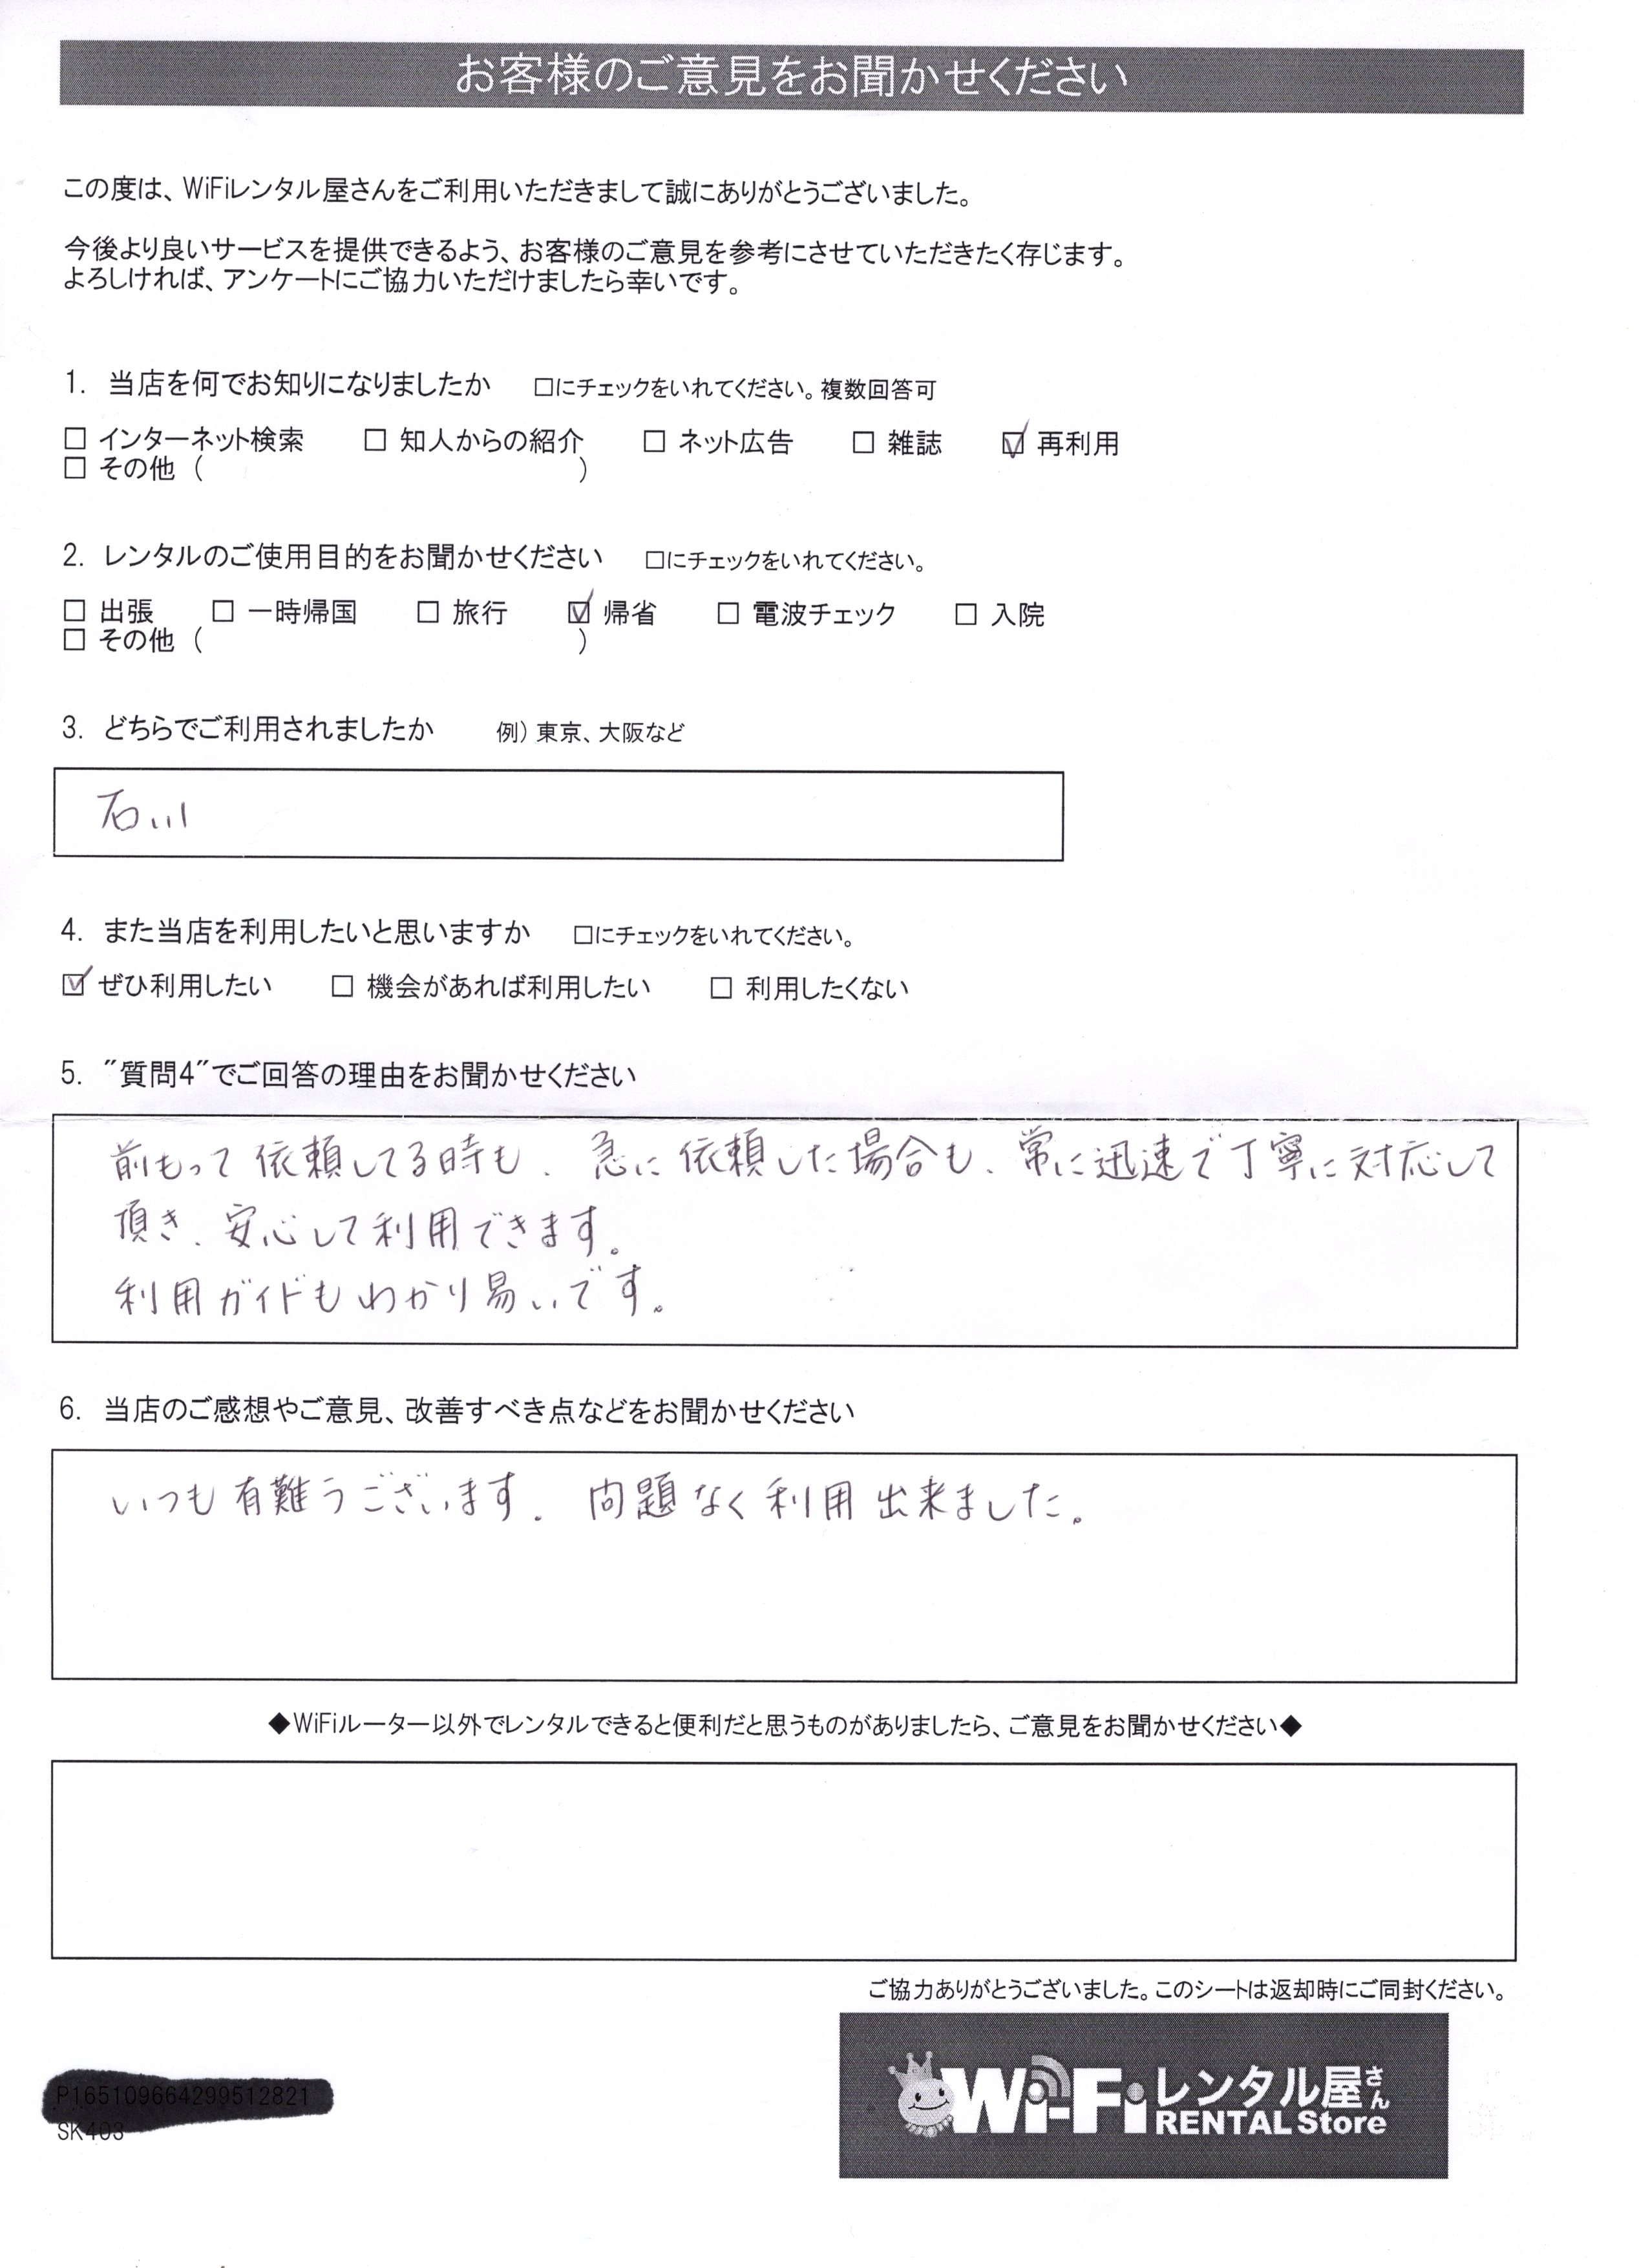 お客様のご意見をお聞かせください
この度は、WiFiレンタル屋さんをご利用いただきまして誠にありがとうございました。
今後より良いサービスを提供できるよう、お客様のご意見を参考にさせていただきたく存じます。
よろしければ、アンケートにご協力いただけましたら幸いです。
1. 当店を何でお知りになりましたか □にチェックをいれてください。複数回答可
□ インターネット検索 □ 知人からの紹介 □ ネット広告 □ 雑誌 ☑ 再利用
□ その他 ( )
2. レンタルのご使用目的をお聞かせください □にチェックをいれてください。
□ 出張 □ 一時帰国 □ 旅行 ☑ 帰省 □ 電波チェック □ 入院
□ その他 ( )
3. どちらでご利用されましたか 例) 東京、大阪など
石川
4. また当店を利用したいと思いますか □にチェックをいれてください。
☑ ぜひ利用したい □ 機会があれば利用したい □ 利用したくない
5. "質問4"でご回答の理由をお聞かせください
前もって依頼してる時も、急に依頼した場合も、常に迅速で丁寧に対応して
頂き、安心して利用できます。
利用ガイドもわかり易いです。
6. 当店のご感想やご意見、改善すべき点などをお聞かせください
いつも有難うございます。問題なく利用出来ました。
◆WiFiルーター以外でレンタルできると便利だと思うものがありましたら、ご意見をお聞かせください◆
ご協力ありがとうございました。このシートは返却時にご同封ください。
Wi-Fiレンタル屋さん
RENTAL Store
SK403